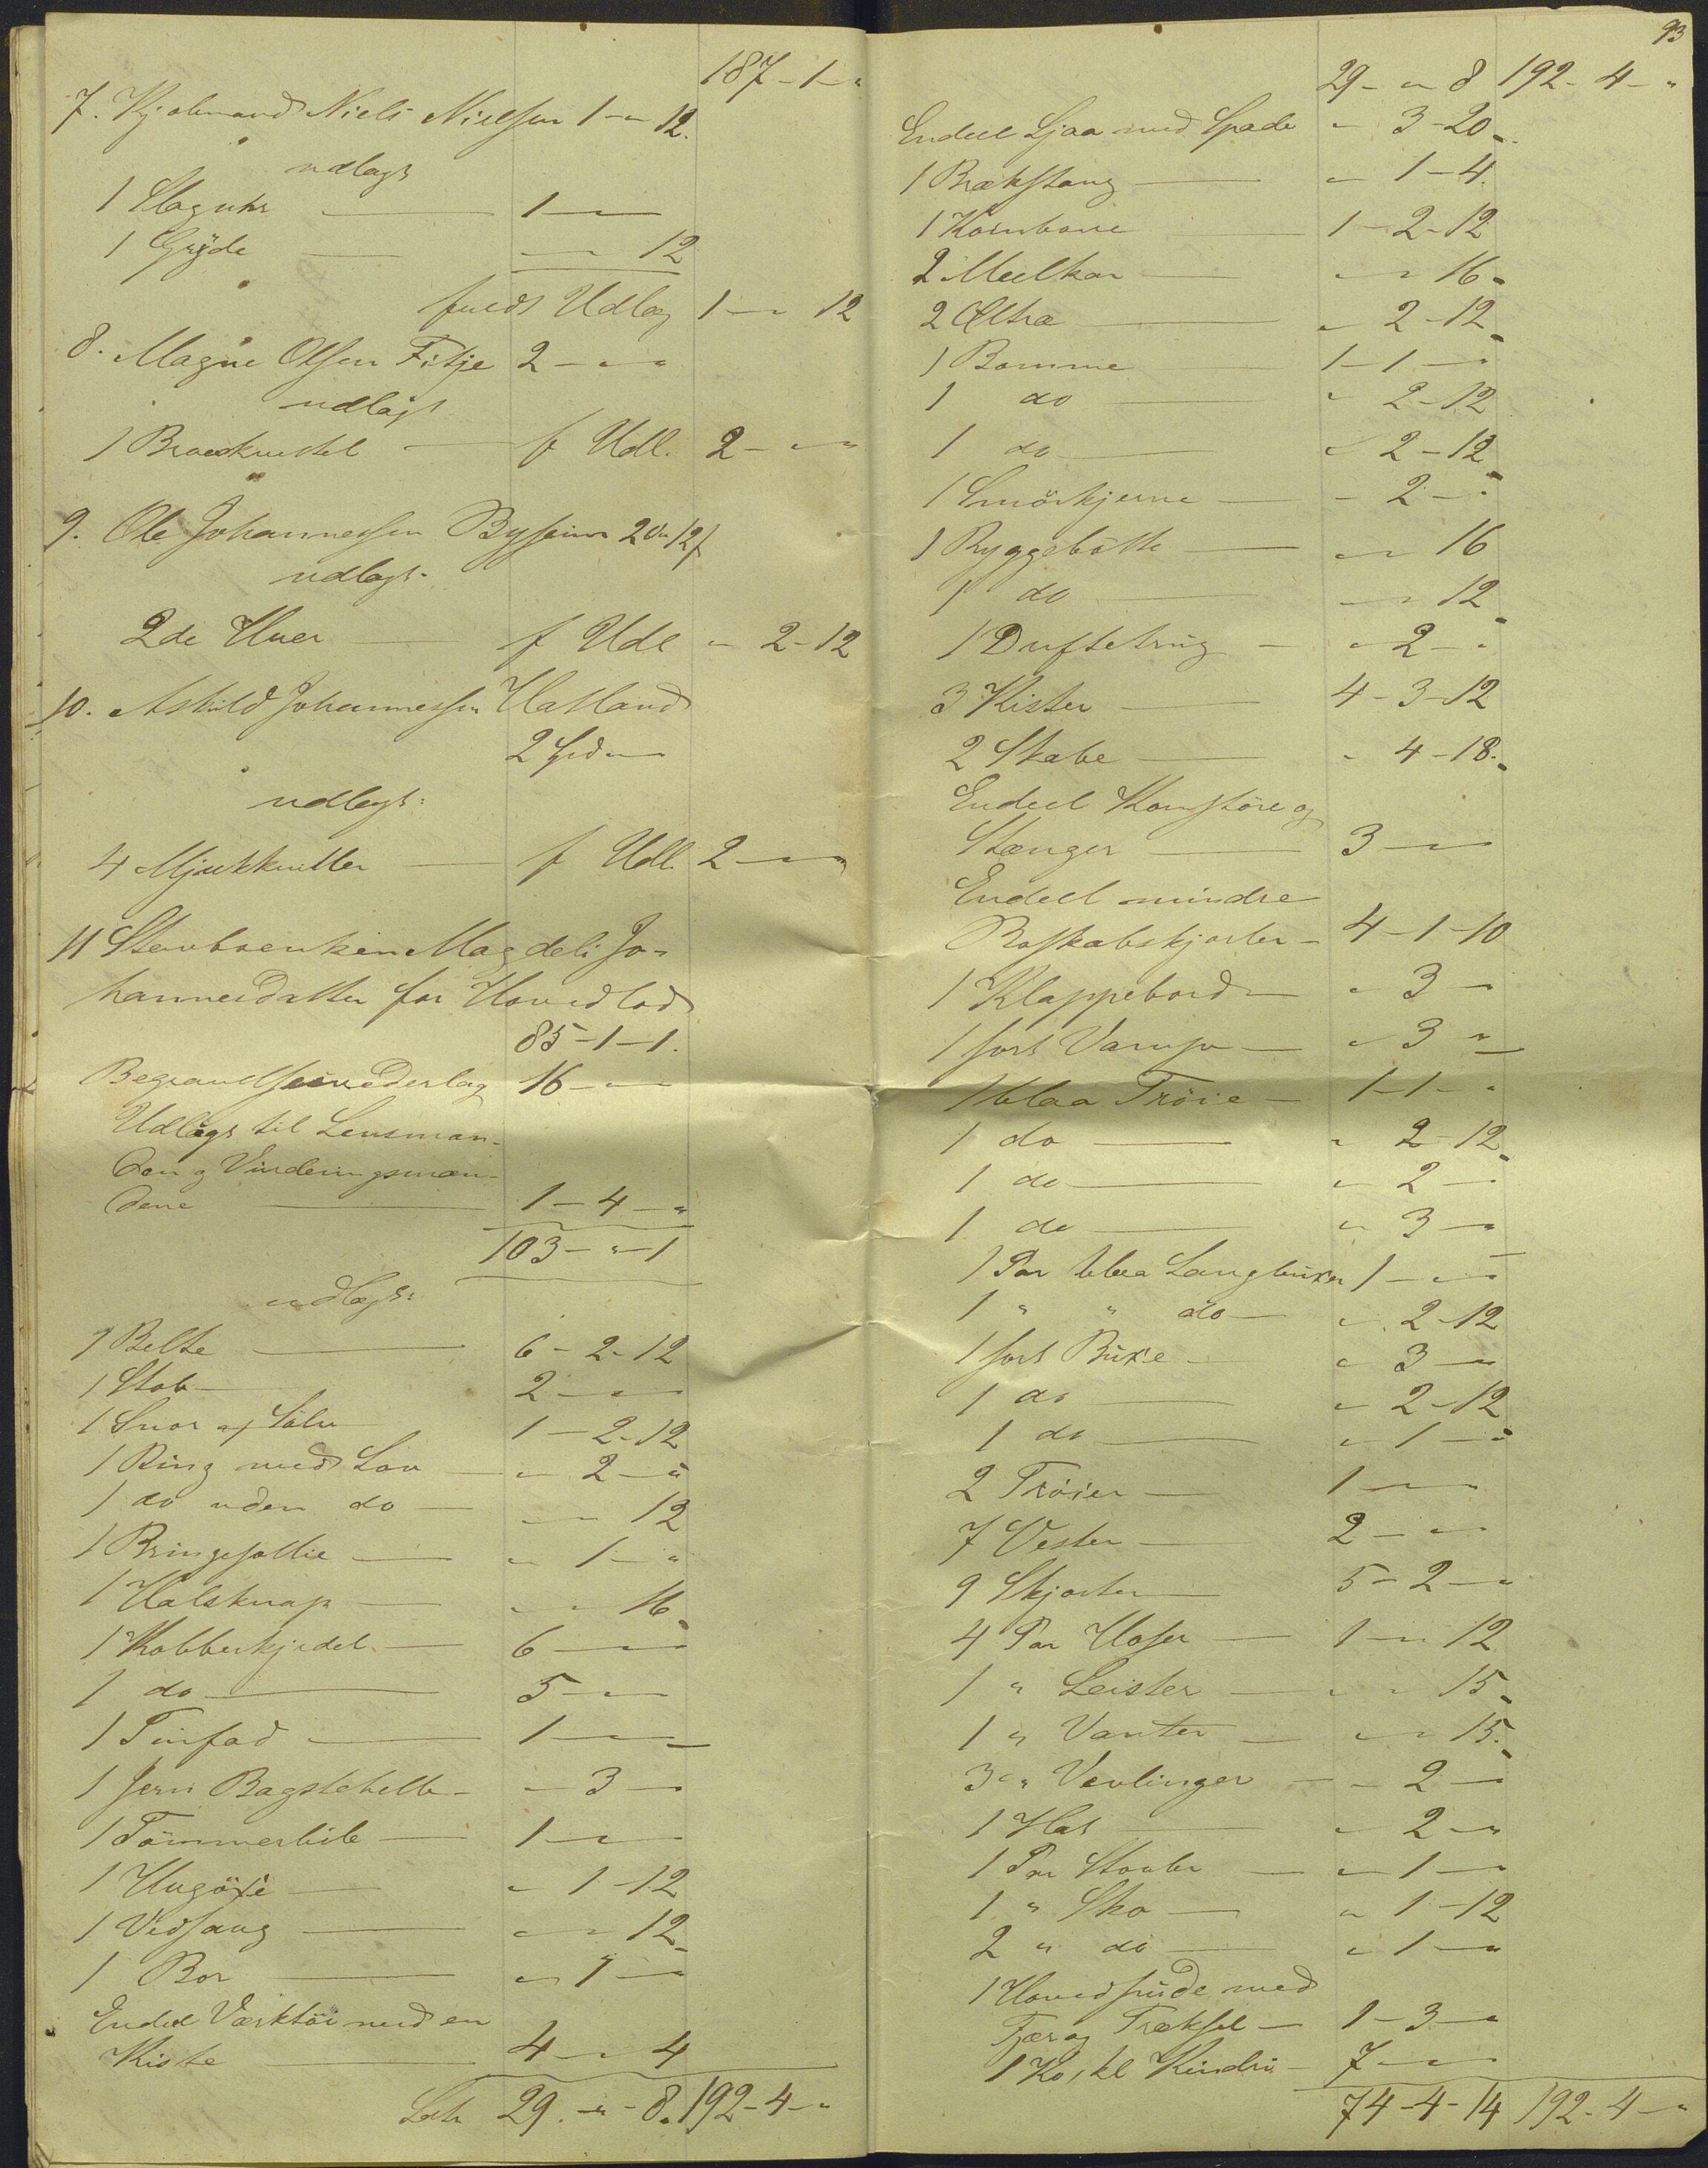 187-1-"
7. Kjøbmand Niels Nielsen 1-"-12.
udlagt
1 Slaguhr 1-"-"
1 Gryde "-"-12
fuldt Udlæg 1-"-12
8. Magne Olsen Fitje 2-"-"
udlagt
1 f Udl. 2-"-"
9. Ole Johannessen 2 Ort 12 f
udlagt
2de Huer f Udl "-2-12
10. Askild Johannessen Hatland
2 Spd "-"
udlagt:
4 f Udl. 2-"-"
11 Stervboenken Magdeli Jo-
hannesdatter for Hovedlod
85-1-1.
Begravelsesvederlag 16-"-"
Udlagt til Lensman-
den og Vurderingsmæn-
dene 1-4-"
103-"-1
udlagt:
1 Belte 6-2-12
1 Stob 2-"-"
1 Snor af Sølv 1-2-12
1 Ring med Løv "-2-"
1 do uden do "-"-12
1 Bringesøllie "-1-"
1 Halsknap "-"-16
1 Kobberkjedel 6-"-"
1 do 5-"-"
1 Tinfad 1-"-"
1 Jern Bagstehelle "-3-"
1 Tømmerbile 1-"-"
1 Hugøxe "-1-12
1 Vedsaug "-"-12
1 Bor "-1-"
Endeel Værktøi med en
Kiste 4-"-4
Lats 29-"-8. 192-4-"
93
29-"-8 192-4-"
Endeel Ljaa med Spade "-3-20
1 Brækstang "-1-4.
1 Kornbøre 1-2-12
2 Meelkar "-"-16
2 Øltræ "-2-12
1 Bomme 1-1-"
1 do "-2-12
1 do "-2-12
1 Smørkjerne "-2-"
1 Ryggebøtte "-"-16
1 do "-"-12
1 Duftetrug "-2-"
3 Kister 4-3-12
2 Skabe "-4-18.
Endeel Kornstøre og
Stænger 3-"-"
Endeel mindre
Boskabskjørler 4-1-10
1 Klappebord "-3-"
1 sort Vams "-3-"
1 blaa Trøie 1-1-"
1 do "-2-12
1 do "-2-"
1 do "-3-"
1 Par blaa Langbuxer 1-"-"
1 " " do "-2-12
1 sort Buxe "-3-"
1 do "-2-12
1 do "-1-"
2 Trøier 1-"-"
7 Vester 2-"-"
9 Skjorter 5-2-"
4 Par Hoser 1-"-12
1 " Leister "-"-15
1 " Vanter "-"-15.
3 " Vevlinger "-2-"
1 Hat "-2-"
1 Par Støvler "-1-"
1 " Sko "-1-12
2 " do "-1-"
1 Hovedpude med
Fjær og Træksel 1-3-"
1 Ko, kl Kindri 7-"-"
74-4-14 192-4-"